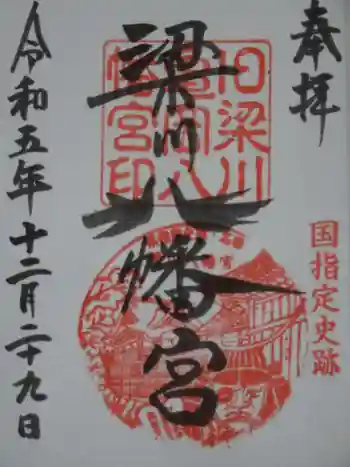 奉拝
国指定史跡
旧梁川
亀岡八
幡宮印
梁川八幡宮
令和五年十二月二十九日